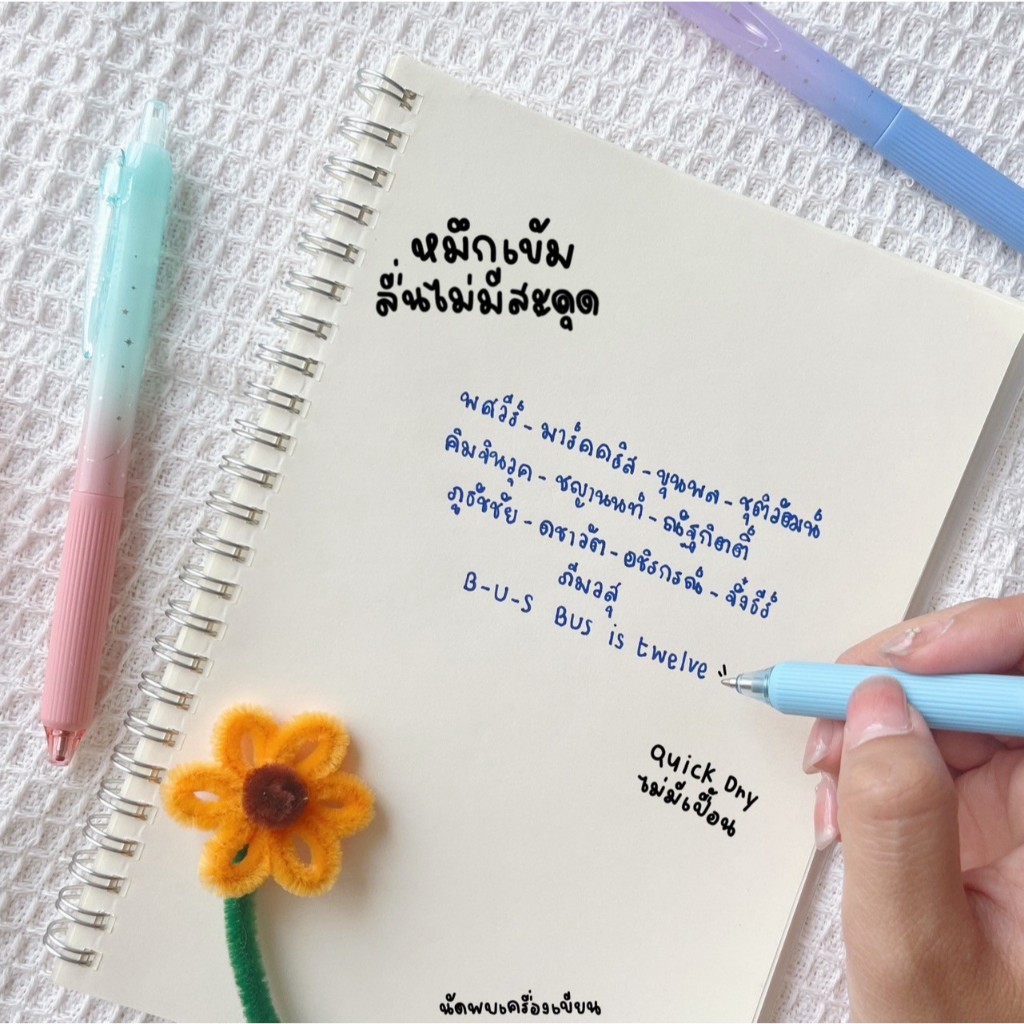 หมึกเข้ม
ลื่นไม่มีสะดุด
พศวีร์ - มาร์คคริส - ขุนพล - ชุติวัฒน์
คิมจินวุค - ชญานนท์ - ณัฐกิตติ์
ภูรัชชัย - ดชาวัต - อชิรกรณ์ - จิ๋งธีร์
ภีมวสุ
B-U-S Bus is twelve
Quick Dry
ไม่มีเปื้อน
นัดพบเครื่องเขียน